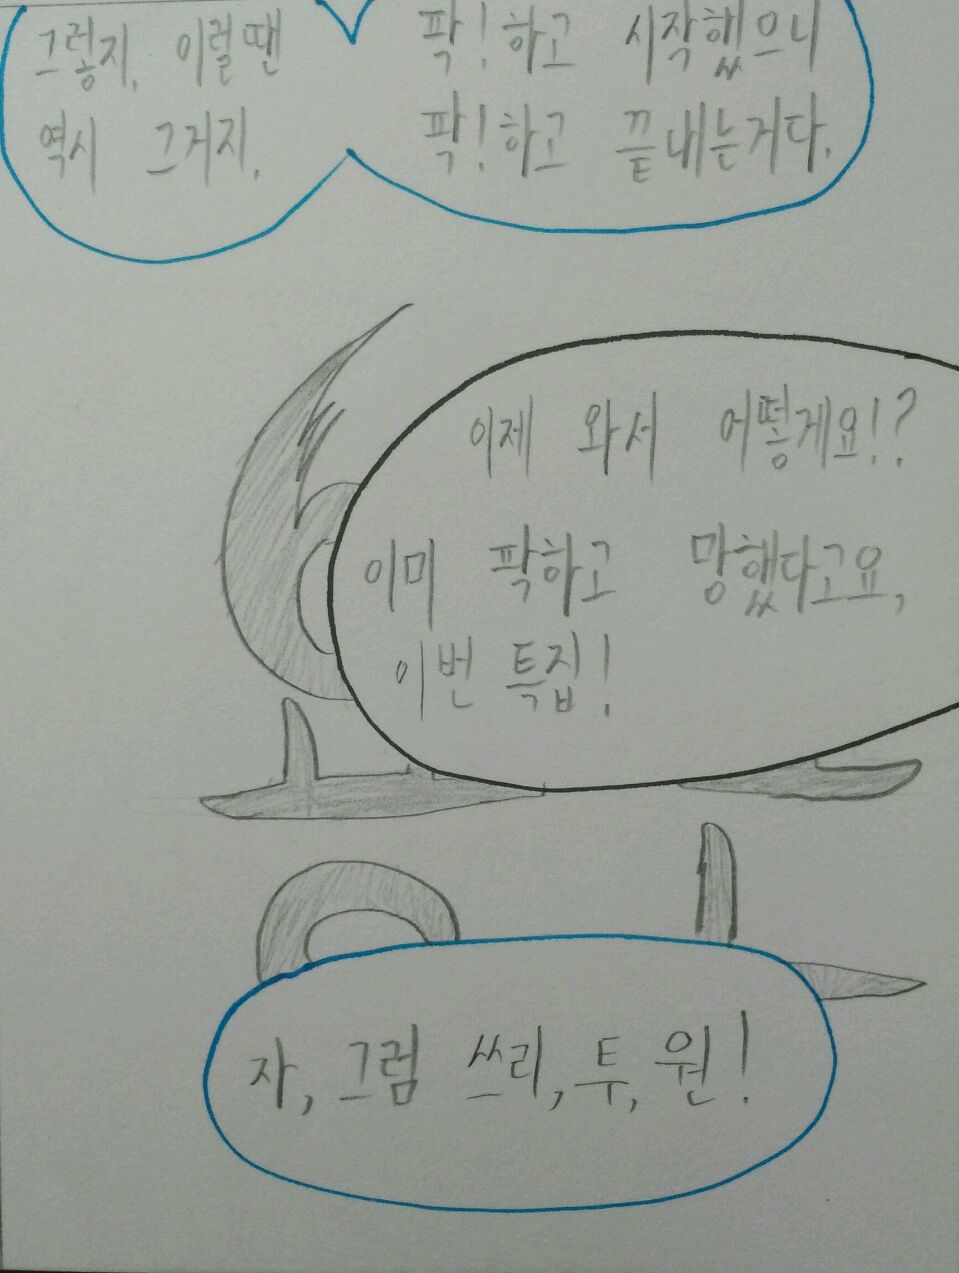 그렇지, 이럴땐
역시 그거지.
팍! 하고 시작했으니
팍! 하고 끝내는거다.
이제 와서 어떻게요!?
이미 팍하고 망했다고요,
이번 특집!
자, 그럼 쓰리, 투, 원!